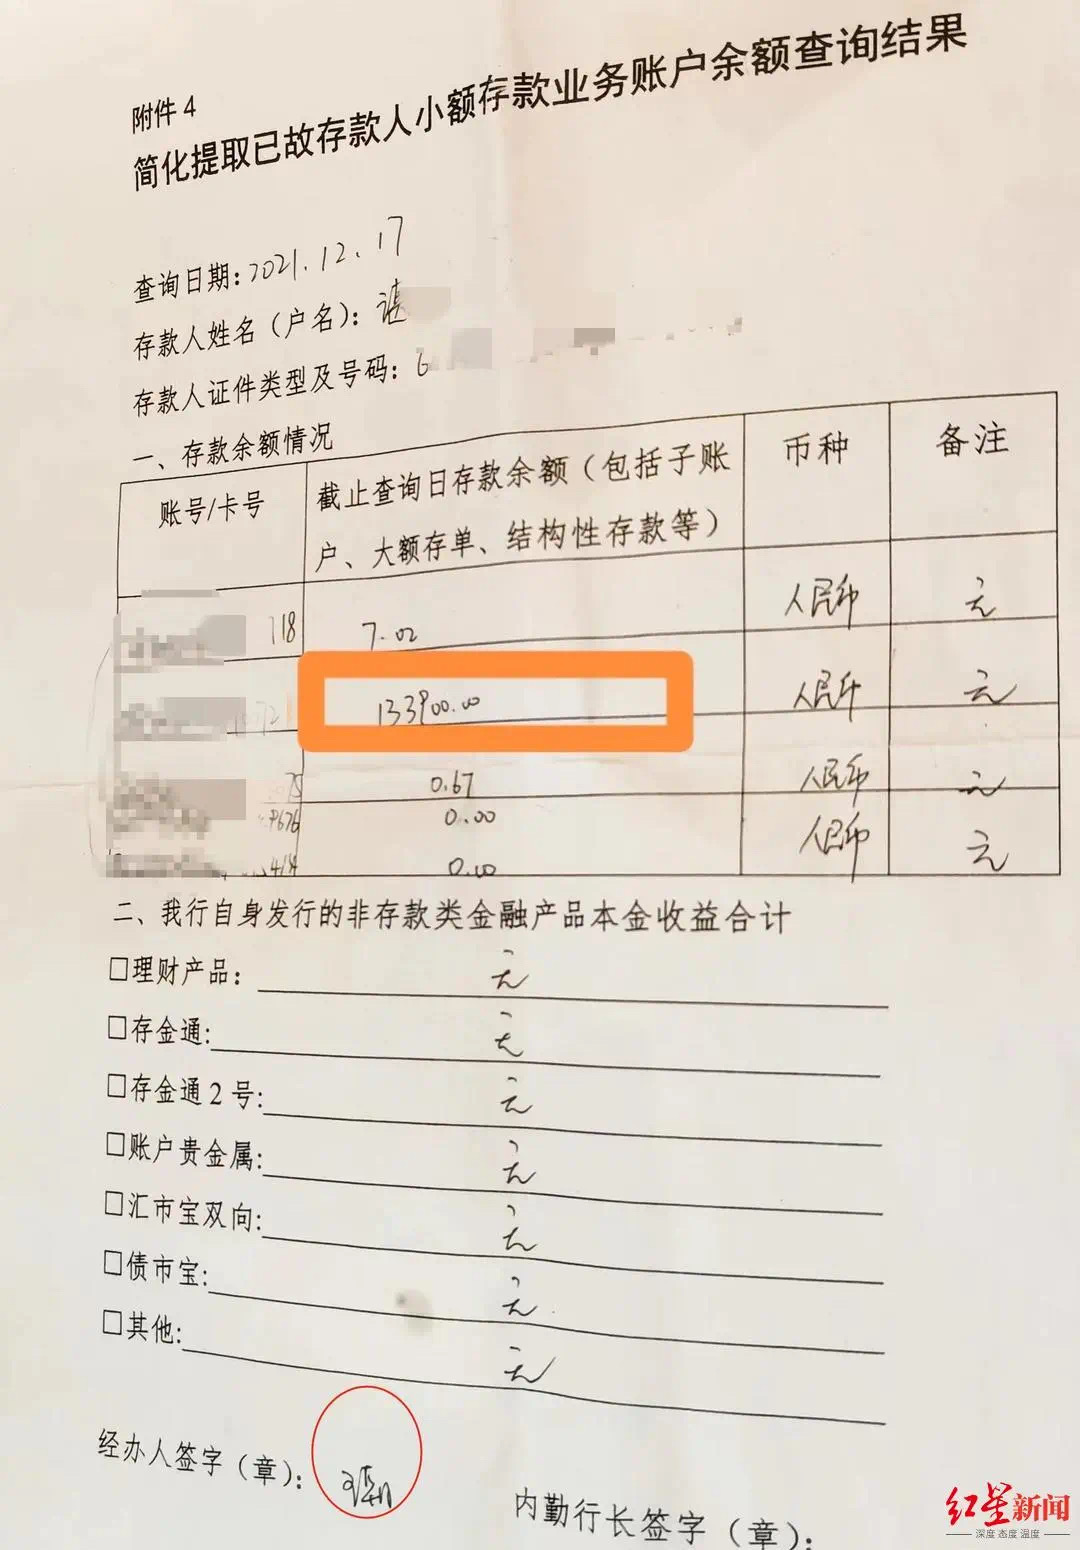 附件4
简化提取已故存款人小额存款业务账户余额查询结果
查询日期:2021.12.17
存款人姓名（户名）：谌
存款人证件类型及号码：6
一、存款余额情况
账号/卡号 截止查询日存款余额（包括子账户、大额存单、结构性存款等） 币种 备注
118 7.02 人民币 元
133900.00 人民币 元
75 0.67 人民币 元
9676 0.00 人民币 元
414 0.00
二、我行自身发行的非存款类金融产品本金收益合计
□理财产品： 元
□存金通: 元
□存金通2号: 元
□账户贵金属: 元
□汇市宝双向: 元
□债市宝: 元
□其他: 元
经办人签字（章）：
内勤行长签字（章）：
红星新闻
深度 态度 温度